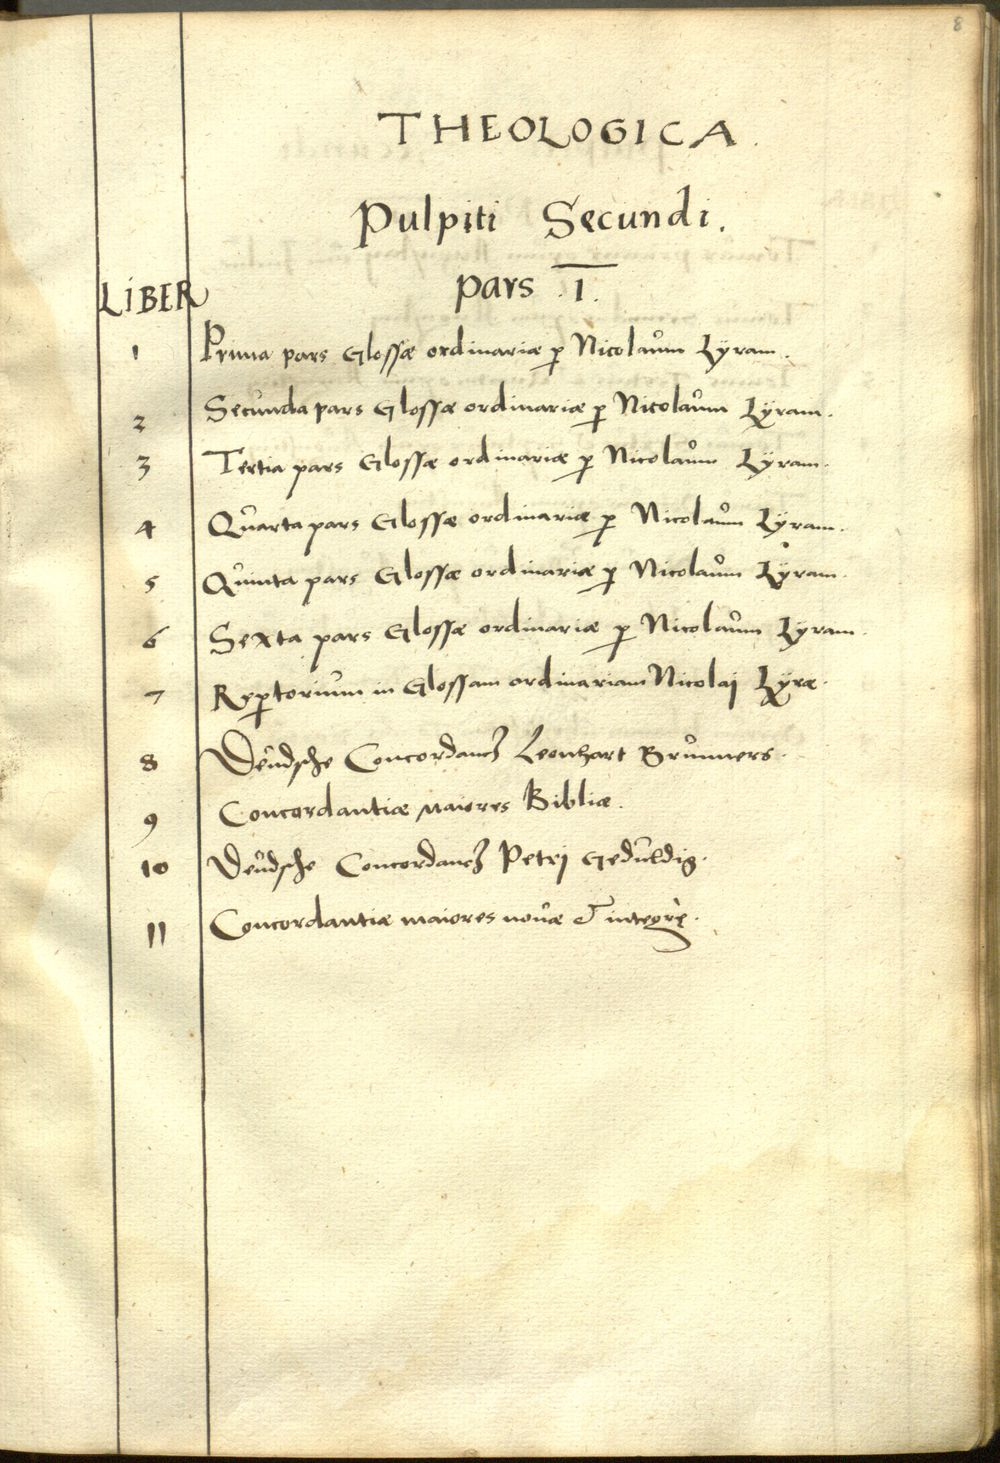 8
THEOLOGICA.
Pulpiti Secundi.
LIBER pars .1.
1 Prima pars Glossæ ordinariæ p Nicolaum Lÿram.
2 Secunda pars Glossæ ordinariæ p Nicolaum Lÿram.
3 Tertia pars Glossæ ordinariæ p Nicolaum Lÿram.
4 Quarta pars Glossæ ordinariæ p Nicolaum Lÿram.
5 Quinta pars Glossæ ordinariæ p Nicolaum Lÿram.
6 Sexta pars Glossæ ordinariæ p Nicolaum Lÿram.
7 Reptorium in Glossam ordinariam Nicolaj Lÿræ.
8 Deudsche Concordantz Leonhart Brunners.
9 Concordantiæ maiores Bibliæ.
10 Deudsche Concordantz Petrj Geduldig.
11 Concordantiæ maiores nouæ & integrę.